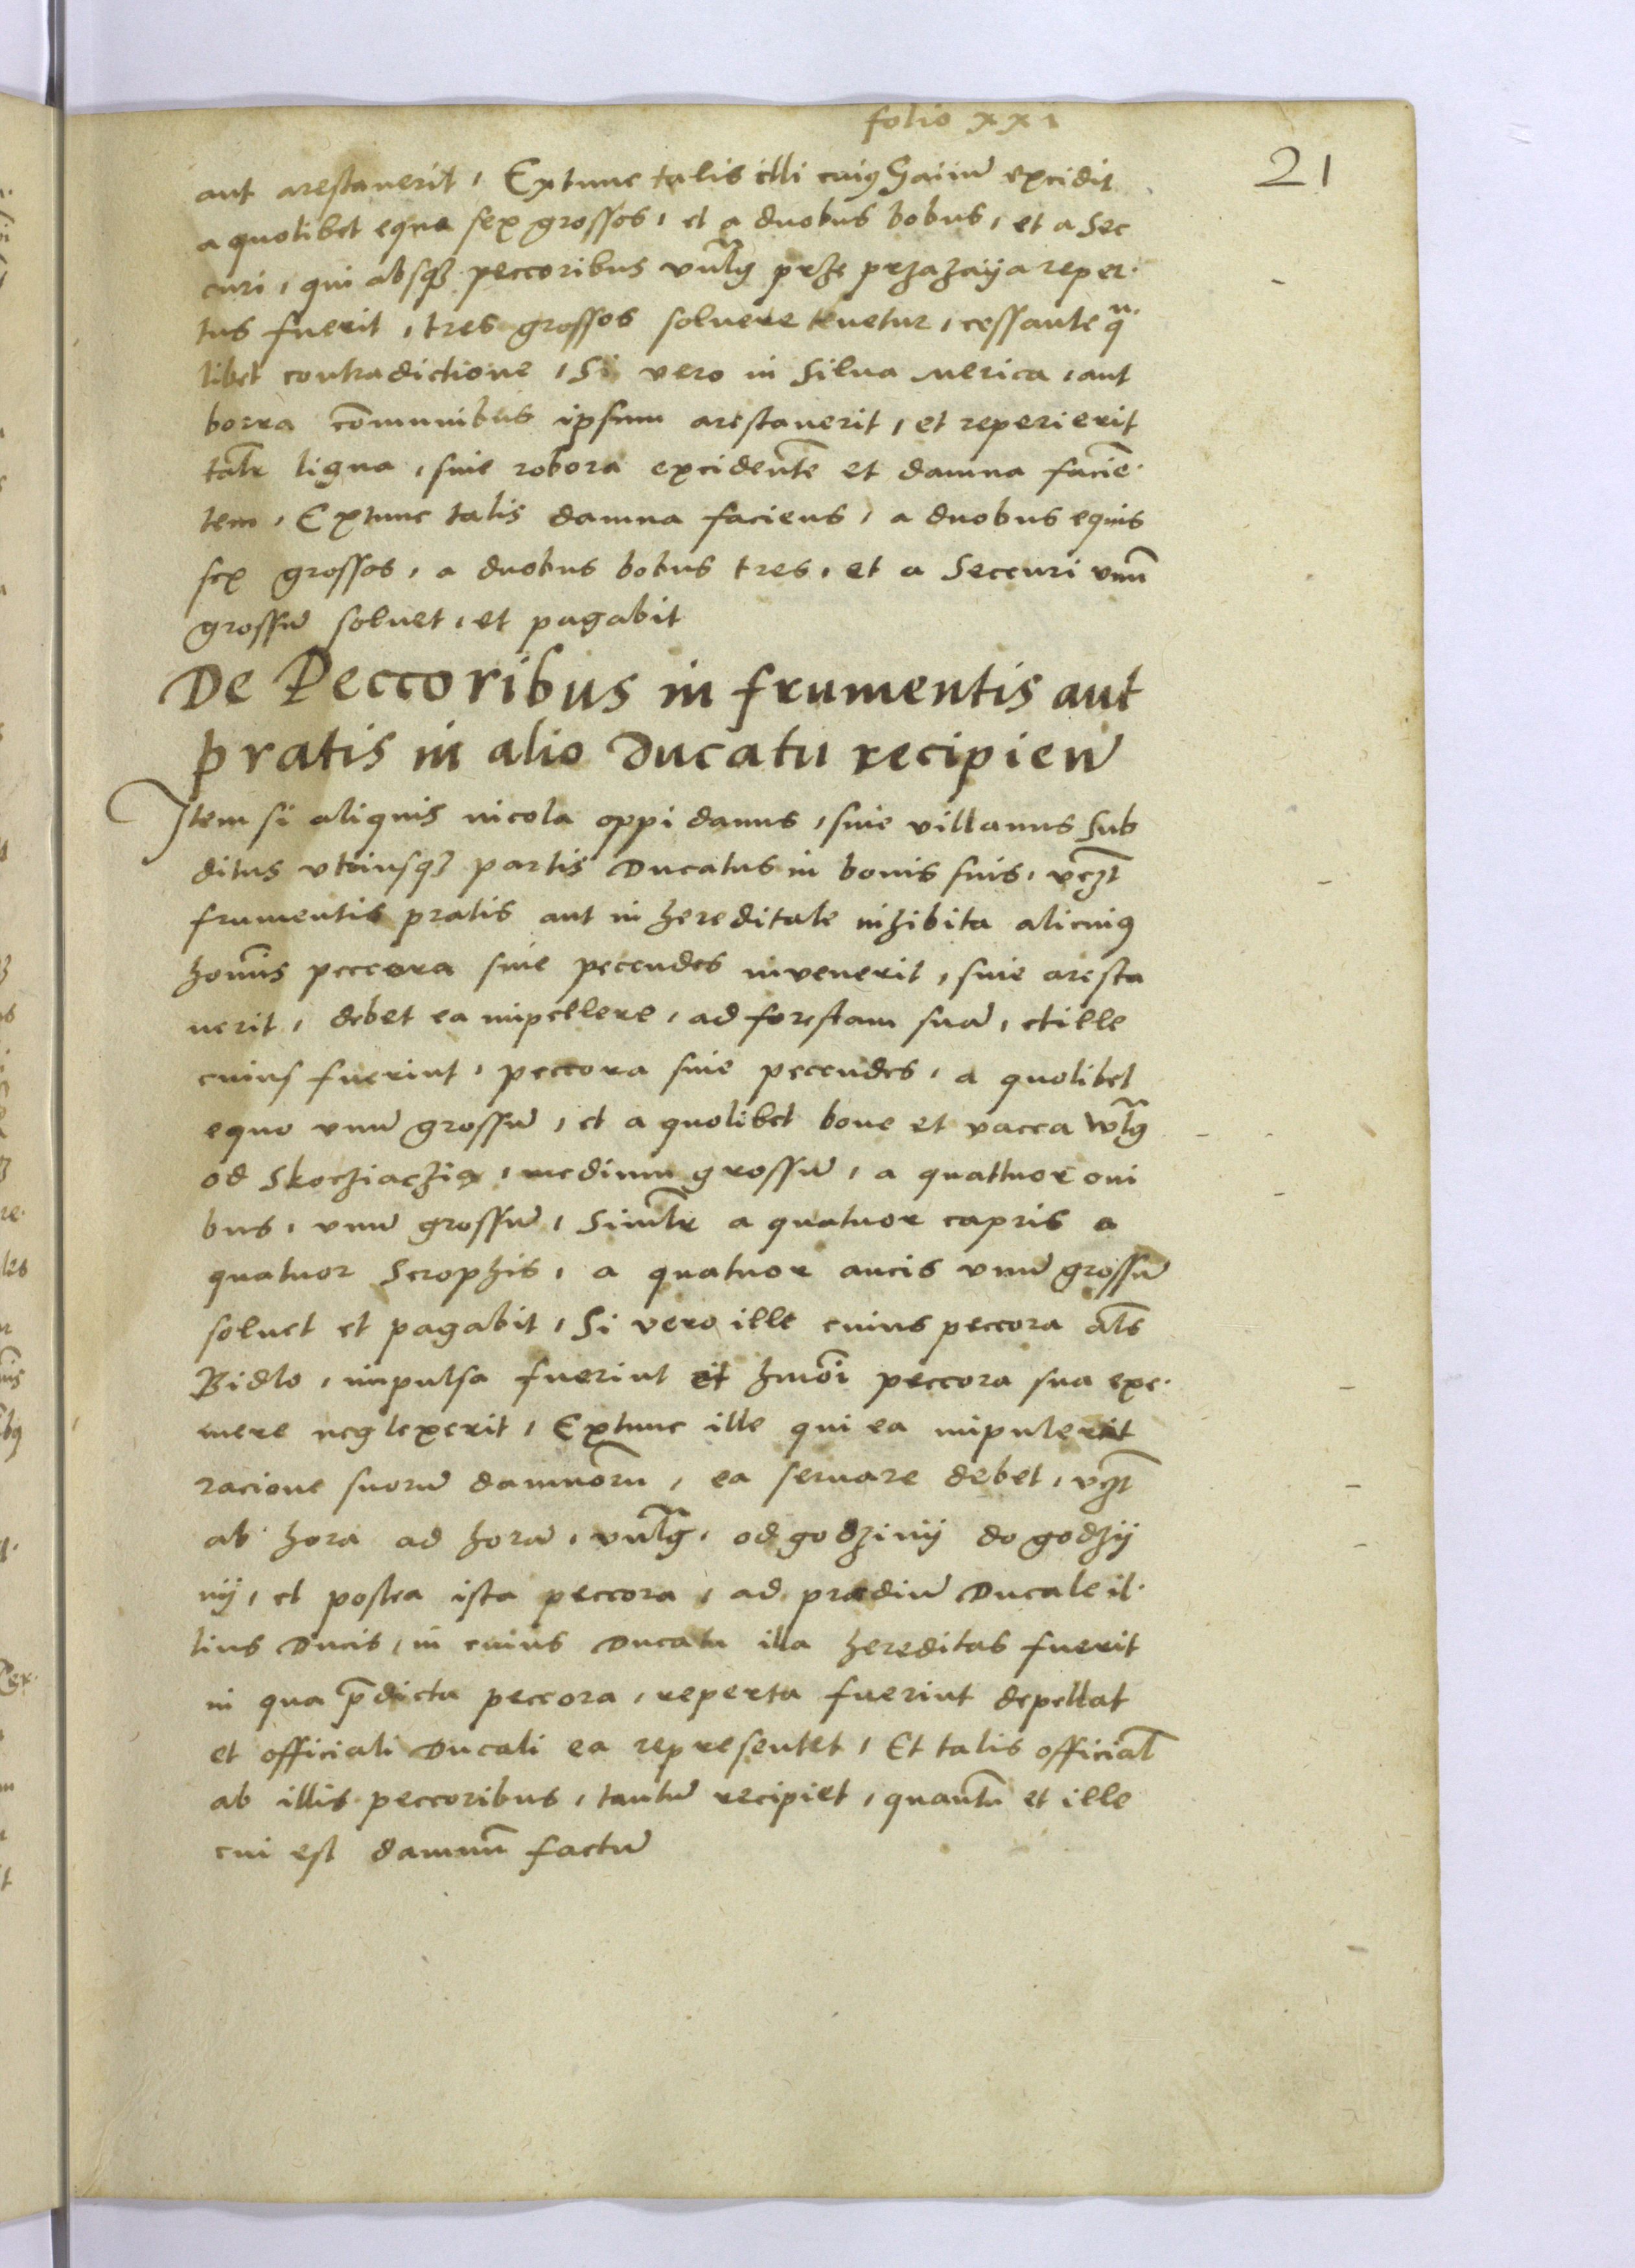 folio xxi
21
aut arestaverit, Extunc talis illi cuiꝰ Gaiū excidit
a quolibet equo sex grossos, et a duobus bobus, et a Sec
curi, qui absqꝫ peccoribus vulg prze przazaÿa reper
tus fuerit, tres grossos soluere tenetur, cessante q̄
libet contradictione, Si vero in Silua merica, aut
borra cōmunibus ipsum arestauerit, et reperierit
talr ligna, siue robora excidentē et damna facie
tem, Extunc talis damna faciens, a duobus equis
sex grossos, a duobus bobus tres, et a Seccuri vnū
grossū soluet, et pagabit
De Peccoribus in frumentis aut
pratis in alio Ducatu recipien
Item si aliquis incola oppidanus, siue villanus sub
ditus vtriusqꝫ partis Ducatus in bonis suis, vcꝫt
frumentis pratis aut in hereditate inhibita alicuiꝰ
homīs peccora siue pecudes invenerit, siue aresta
uerit, debet ea impellere, ad forestam suā, et ille
cuius fuerint, peccora siue pecudes, a quolibet
equo vnū grossū, et a quolibet boue et vacca wlg
od Skocziaczia, medium grossū, a quattuor oui
bus, vnū grossū, Simlr a quatuor capris a
quatuor Scrophis, a quatuor aucis vnū grossū
soluet et pagabit, Si vero ille cuius peccora als
Bidlo, impulsa fuerint et hmōi peccora sua exi
mere neglexerit, Extunc ille qui ea impulerit
racione suorū damnorū, ea seruare debet, vcꝫt
ab hora ad horā, vulg, od godzinÿ do godzÿ
nÿ, et postea ista peccora, ad prædiū Ducale il
lius Ducis, in cuius Ducatu illa hereditas fuerit
in qua p̄dicta peccora, reperta fuerint depellat
et officiali Ducali ea representet, Et talis official
ab illis peccoribus, tantū recipiet, quantū et ille
cui est damnū factū